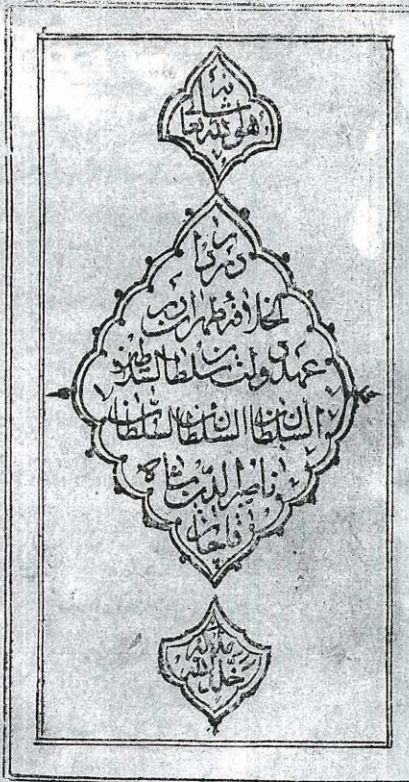 هو الله تعالی شانه
در دار
الخلافه طهران در
عهد دولت سلطان السلاطین
السلطان بن السلطان بن السلطان
ناصرالدین شاه
قاجار
خلد الله ملکه